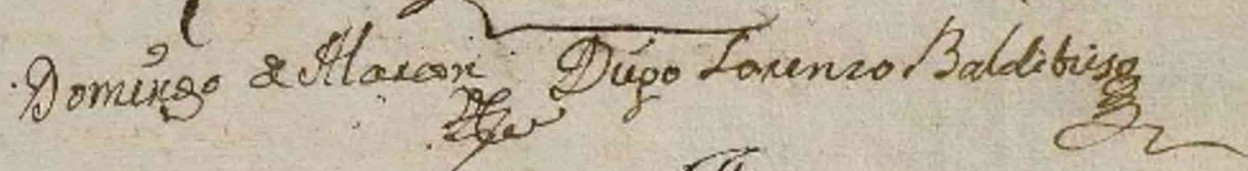 Domingo de Alarcon Diego Lorenzo Baldibieso